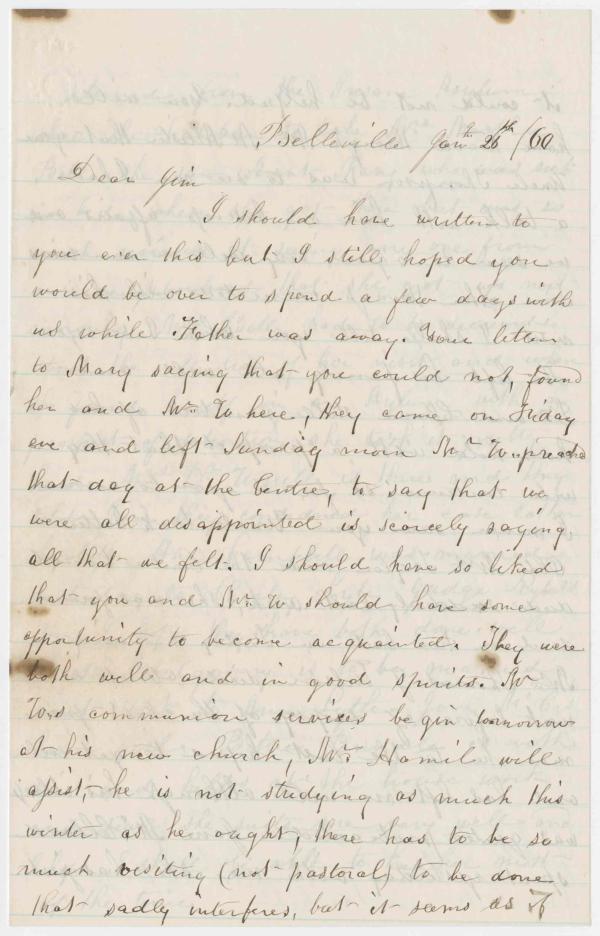 Belleville Jan 26th /60
Dear Jim
I should have written to
you ever this but I still hoped you
would be over to spend a few days with
us while Father was away. Your letter
to Mary saying that you could not, found
her and Mr. W here, they came on Friday
eve and left Sunday morn Mr W preached
that day at the Centre, to say that we
were all disappointed is scarcely saying
all that we felt. I should have so liked
that you and Mr. W should have some
opportunity to become acquainted. They were
both well and in good spirits. Mr
communion services begin tomorrow
at his new church, Mr. Hamil will
assist, he is not studying as much this
winter as he ought, there has to be so
much visiting (not pastoral) to be done
that sadly interferes, but it seems as if